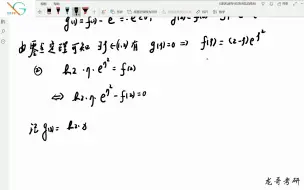 由零点定理可知 ∃ξ∈(1,2) 有 g(ξ)=0 ⇒ f(ξ)=(2-ξ)e^{ξ²}
② ln2·η·e^{η²}=f(2)
⇔ ln2·η·e^{η²}-f(2)=0
记 g(x)= ln2·x
龙哥考研